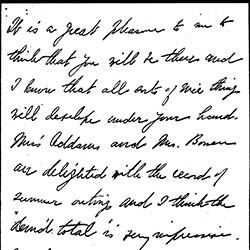 It is a great pleasure to me to
think that you will be there and
I know that all sorts of nice things
will develope under your hand.
Miss Addams and Mrs. Bowen
are delighted with the record of
summer outing and I think the
"demd. total" is very impressive.